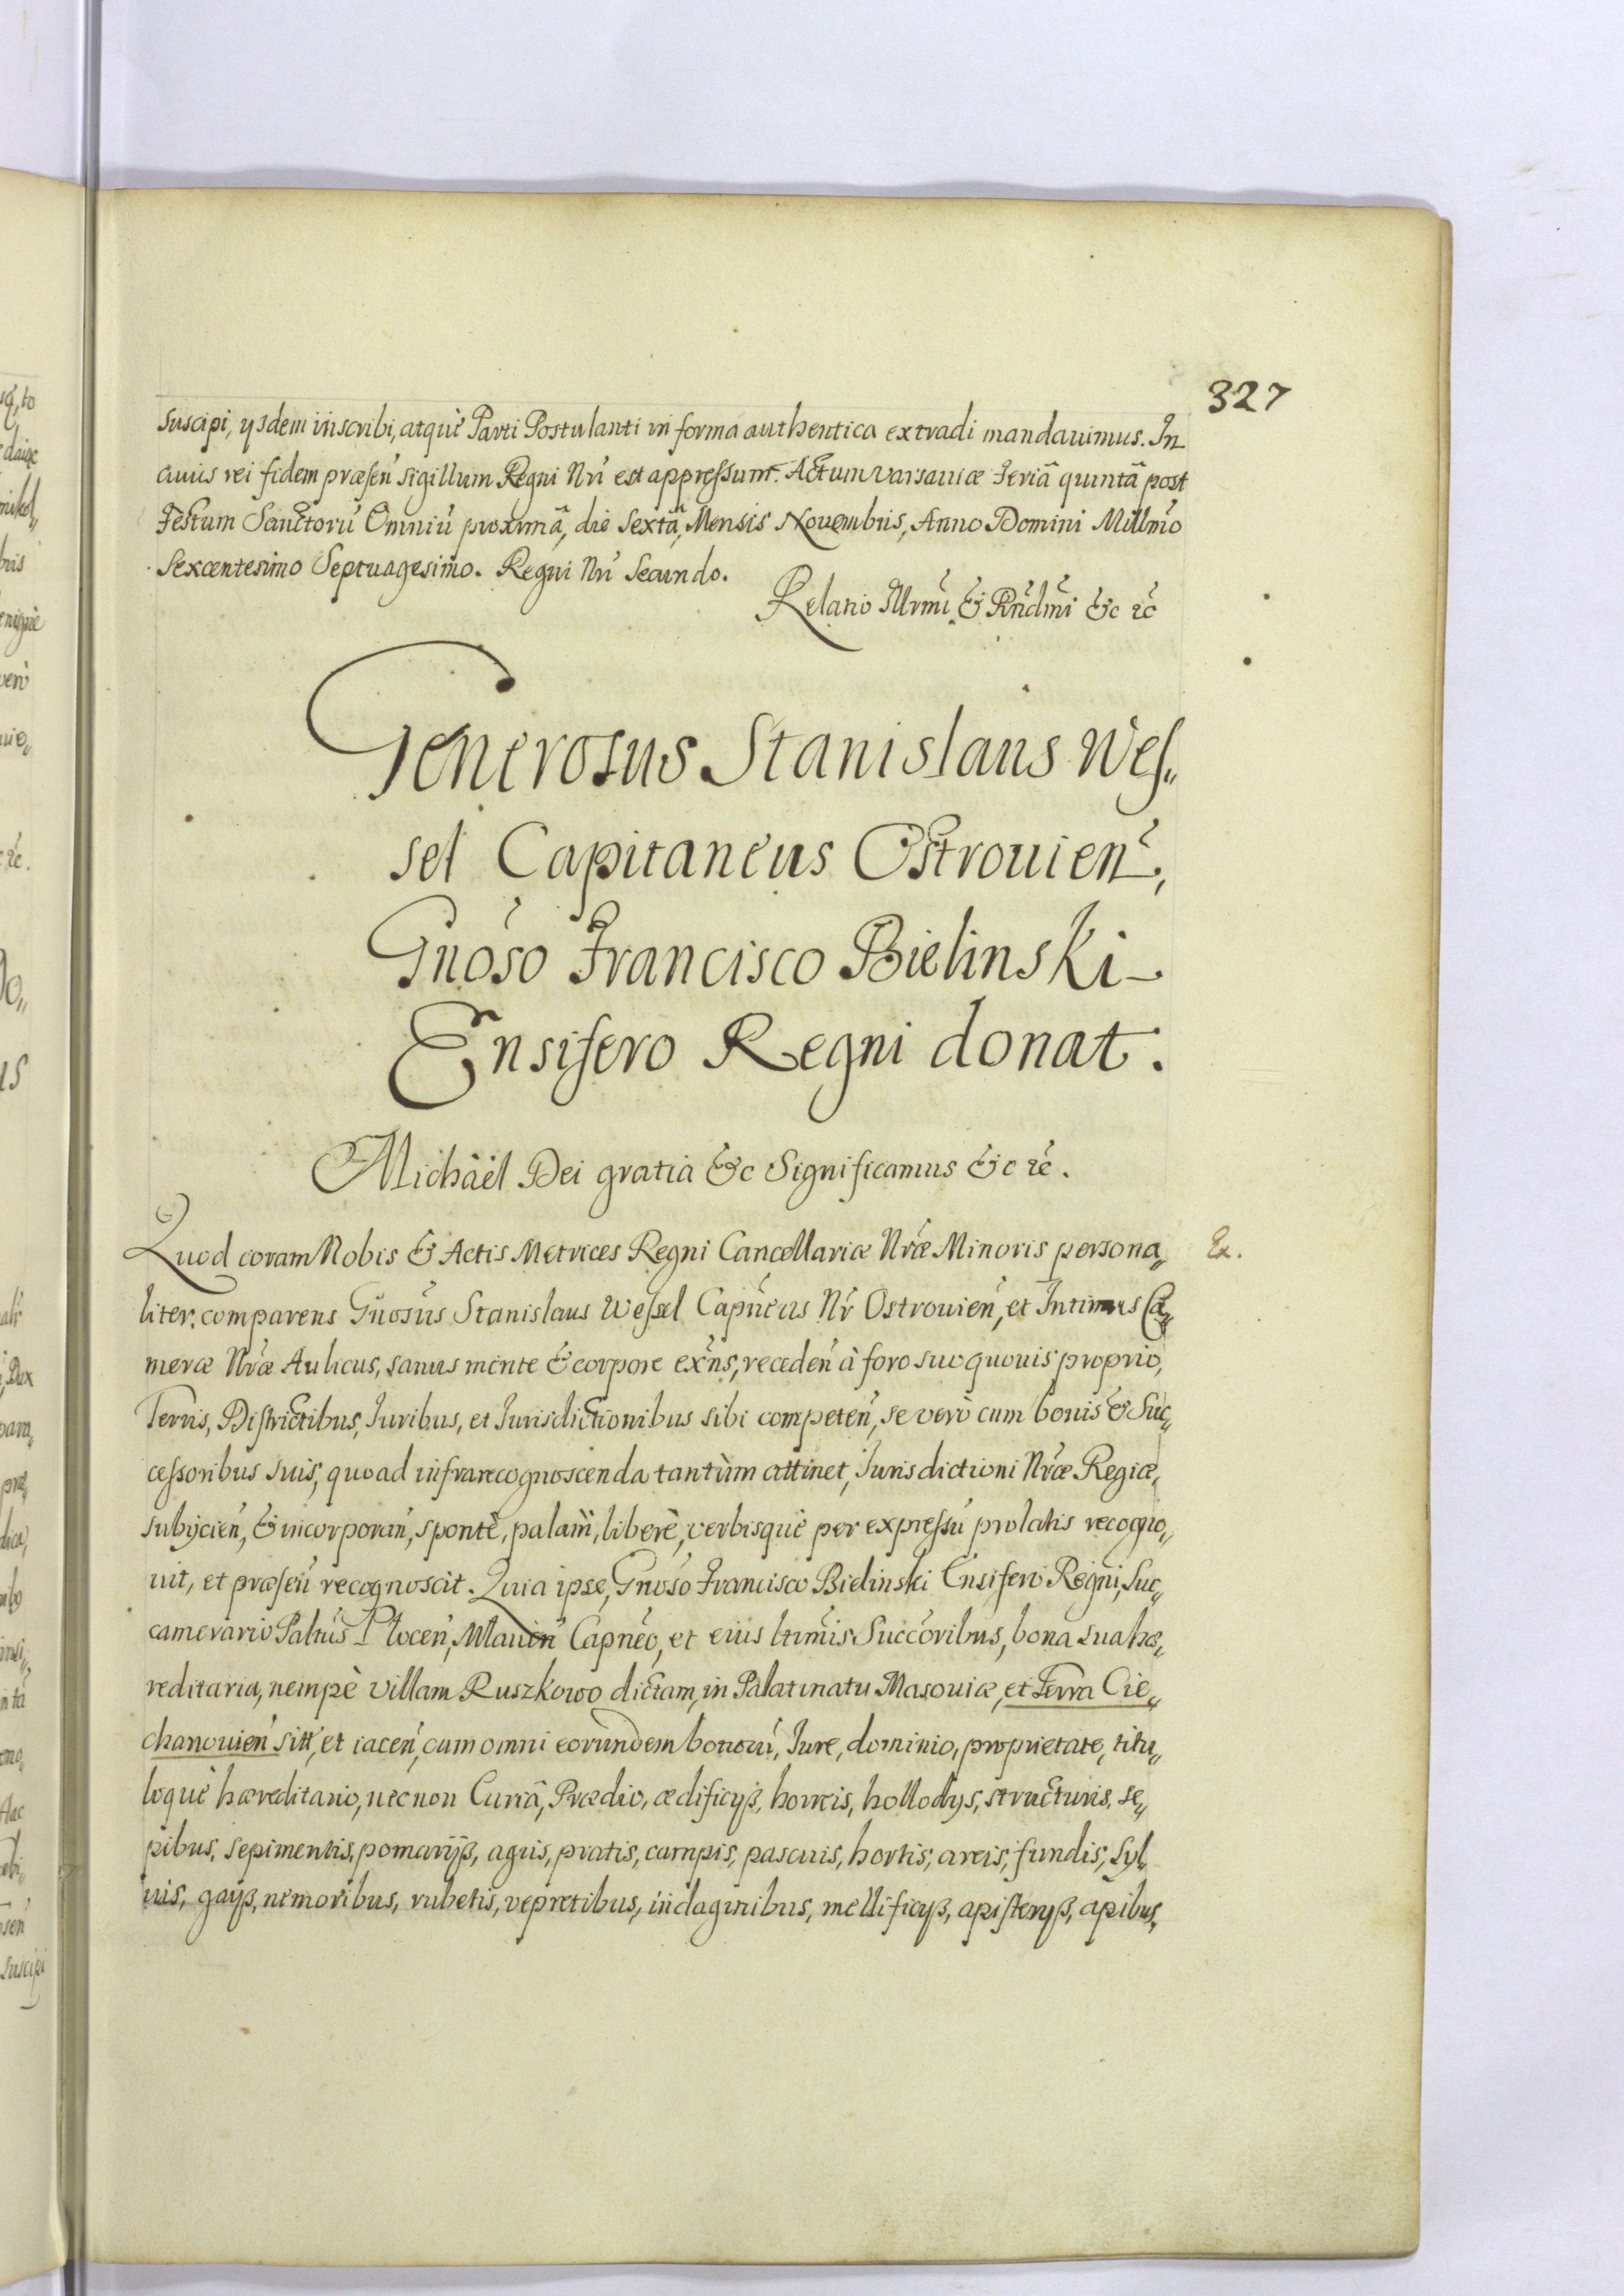 327
suscipi, ysdem inscribi, atquè Parti Postulanti in forma authentica extradi mandauimus. In
cuius rei fidem præsen̄ sigillum Regni Nrī est appressum. Actum Varsauiæ Feriâ quintâ post
Festum Sanctorū Omniū proximâ, die Sextâ Mensis Nouembris, Anno Domini Millm̄o
Sexcentesimo Septuagesimo. Regni Nrī Secundo.
Relatio Illrmī & Rn̄dmī &c rc̄
Generosus Stanislaus Wes„
sel Capitaneus Ostrouien̄,
Gnōso Francisco Bielinski
Ensifero Regni donat.
Michäel Dei gratia &c Significamus &c rc̄.
Quod coram Nobis & Actis Metrices Regni Cancellariæ Nrǣ Minoris persona„
Ex.
liter comparens Gnōsus Stanislaus Wessel Capn̄eus Nr̄ Ostrouien̄, et Intimus Ca„
meræ Nrǣ Aulicus, sanus mente & corpore exn̄s, receden̄ à foro suo quouis proprio,
Terris, Districtibus, Iuribus, et Iurisdictionibus sibi competen̄, se verò cum bonis & Suc„
cessoribus suis, quoad infrarecognoscenda tantùm attinet, Iurisdictioni Nrǣ Regiæ,
subijcien̄, & incorporan̄, spontè, palam, liberè, verbisquè per expressū prolatis recogno„
uit, et præsen̄ recognoscit. Quia ipse, Gnōso Francisco Bielinski Ensifero Regni, Suc„
camerario Paltūs Plocen̄, Mlauien̄ Capnēo, et eius ltīmis Succōribus, bona sua hæ„
reditaria, nempè villam Ruszkowo dictam, in Palatinatu Masouiæ, et Terra Cie„
chanouien̄ sitt̄, et iacen̄, cum omni eorundem bonorū, Iure, dominio, proprietate, titu„
loquè hæreditario, nec non Curiâ, Prædio, ædificyß, horreis, hollodys, structuris, se„
pibus, sepimentis, pomarijß, agris, pratis, campis, pascuis, hortis, areis, fundis, Syl„
uis, gayß, nemoribus, rubetis, vepretibus, indaginibus, mellificyß, apisteryß, apibus,